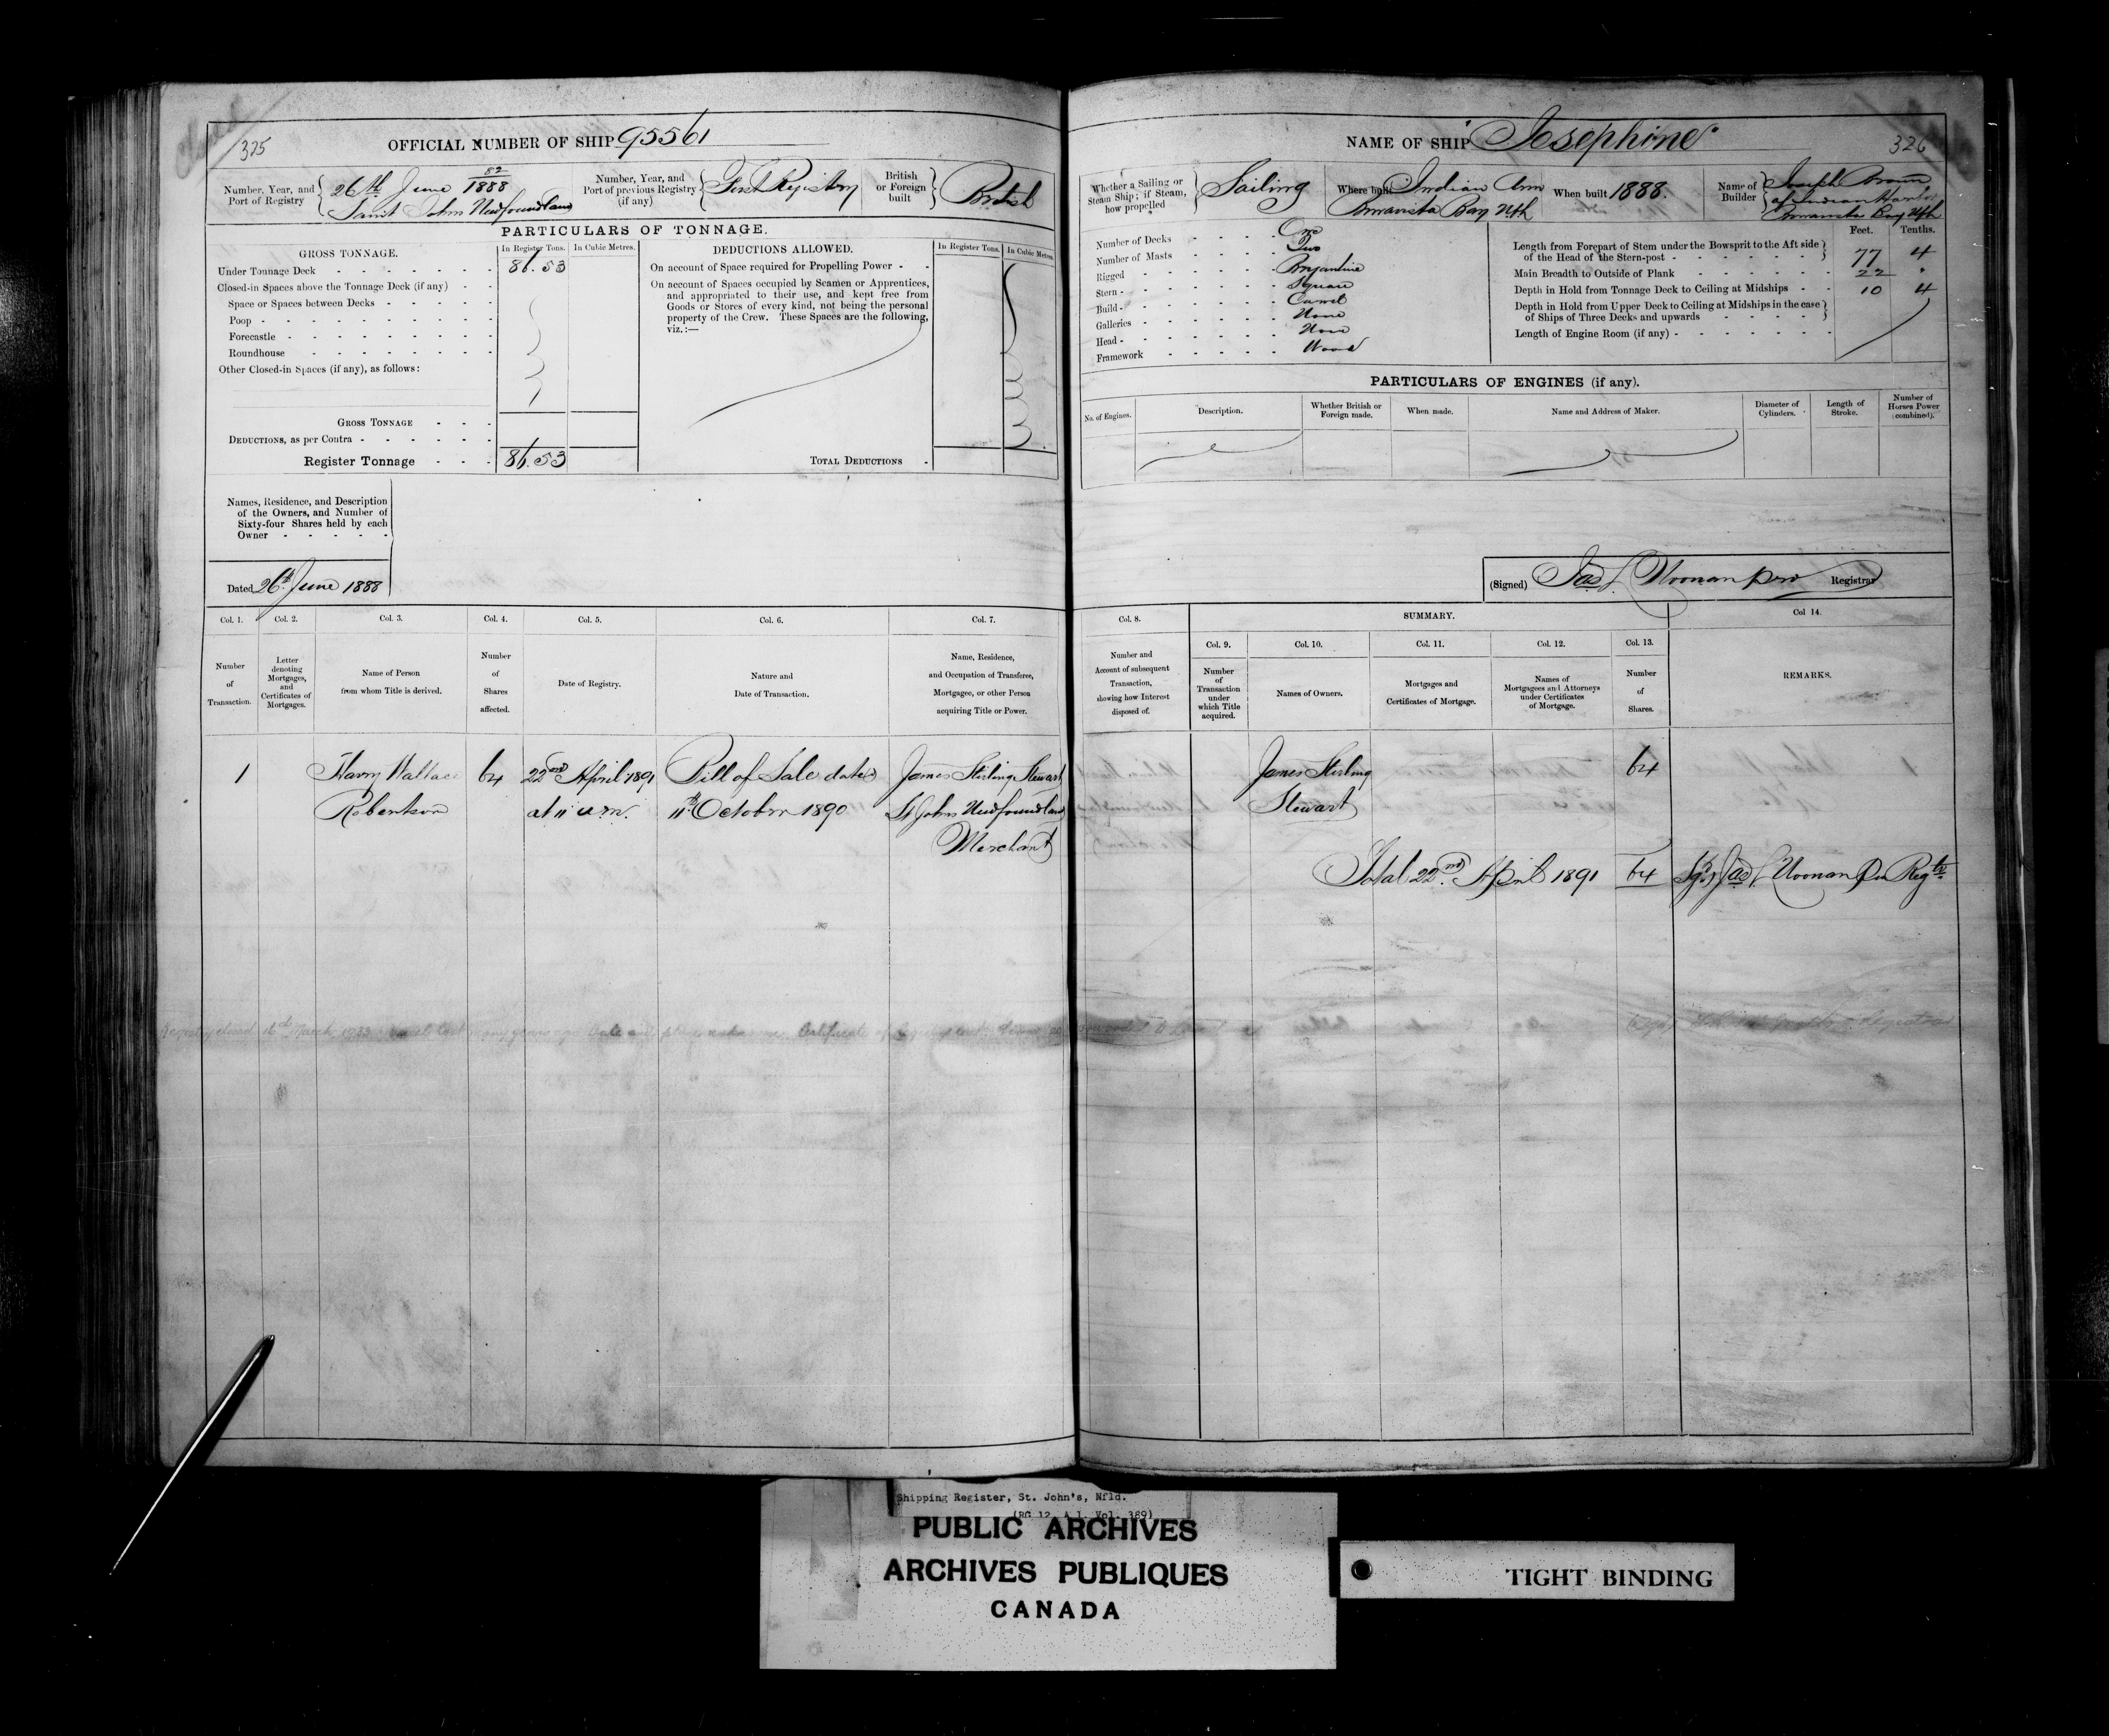 375
OFFICIAL NUMBER OF SHIP 95561
Number, Year, and Port of Registry
26th June 52/1888
Saint Johns Newfoundland
Number, Year, and Port of previous Registry (if any)
First Registry
British or Foreign built
British
PARTICULARS OF TONNAGE.
GROSS TONNAGE.
In Register Tons.
In Cubic Metres.
Under Tonnage Deck 86.53
Closed-in Spaces above the Tonnage Deck (if any)
Space or Spaces between Decks
Poop
Forecastle
Roundhouse
Other Closed-in Spaces (if any), as follows:
GROSS TONNAGE
DEDUCTIONS, as per Contra
Register Tonnage 86.53
DEDUCTIONS ALLOWED.
In Register Tons.
In Cubic Metres.
On account of Space required for Propelling Power
On account of Spaces occupied by Seamen or Apprentices,
and appropriated to their use, and kept free from
Goods or Stores of every kind, not being the personal
property of the Crew. These Spaces are the following,
viz.:—
TOTAL DEDUCTIONS
Names, Residence, and Description
of the Owners, and Number of
Sixty-four Shares held by each
Owner
Dated 26th June 1888
Col. 1.
Number
of
Transaction.
Col. 2.
Letter
denoting
Mortgages,
and
Certificates of
Mortgages.
Col. 3.
Name of Person
from whom Title is derived.
Col. 4.
Number
of
Shares
affected.
Col. 5.
Date of Registry.
Col. 6.
Nature and
Date of Transaction.
Col. 7.
Name, Residence,
and Occupation of Transferee,
Mortgagee, or other Person
acquiring Title or Power.
1
Harry Wallace
Robertson
64
22nd April 1891
at 11 a.m.
Bill of Sale dated
11th October 1890
James Stirling Stewart
St Johns Newfoundland
Merchant
Registry closed March
326
NAME OF SHIP Josephine
Whether a Sailing or
Steam Ship; if Steam,
how propelled
Sailing
Where built Indian Arm
Bonavista Bay Nfld
When built 1888.
Name of
Builder
Joseph Brown
of Indian Harbor
Bonavista Bay Nfld
Number of Decks One
Number of Masts Two
Rigged Brigantine
Stern Square
Build Carvel
Galleries None
Head None
Framework Wood
Feet. Tenths.
Length from Forepart of Stem under the Bowsprit to the Aft side
of the Head of the Stern-post 77 4
Main Breadth to Outside of Plank 22 "
Depth in Hold from Tonnage Deck to Ceiling at Midships 10 4
Depth in Hold from Upper Deck to Ceiling at Midships in the case
of Ships of Three Decks and upwards
Length of Engine Room (if any)
PARTICULARS OF ENGINES (if any).
No. of Engines.
Description.
Whether British or
Foreign made.
When made.
Name and Address of Maker.
Diameter of
Cylinders.
Length of
Stroke.
Number of
Horses Power
(combined).
(Signed) Jas L Noonan pro Registrar
Col. 8.
Number and
Account of subsequent
Transaction,
showing how Interest
disposed of.
SUMMARY.
Col. 9.
Number
of
Transaction
under
which Title
acquired.
Col. 10.
Names of Owners.
Col. 11.
Mortgages and
Certificates of Mortgage.
Col. 12.
Names of
Mortgagees and Attorneys
under Certificates
of Mortgage.
Col. 13.
Number
of
Shares.
Col 14.
REMARKS.
James Stirling
Stewart
64
Total 22nd April 1891 64 Sgd Jas L Noonan Pro Regtr
Shipping Register, St. John's, Nfld.
(RG 12, A 1, Vol. 389)
PUBLIC ARCHIVES
ARCHIVES PUBLIQUES
CANADA
TIGHT BINDING